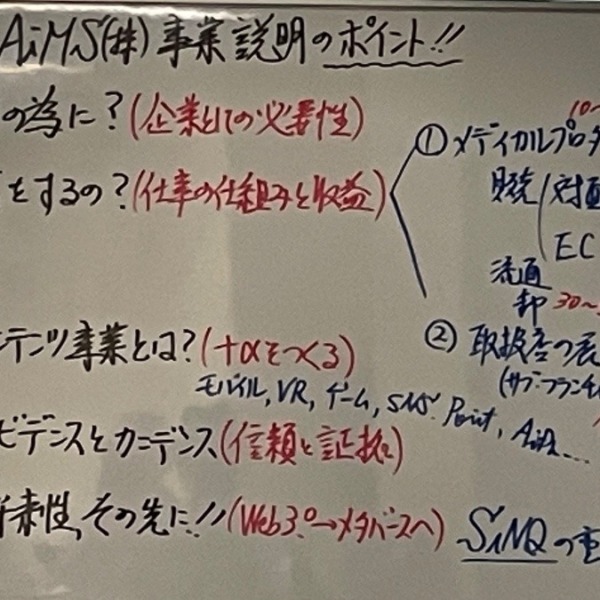 AiMS(株)事業説明のポイント!!
の為に?(企業としての必要性)
をするの?(仕事の仕組みと収益)
① メディカルプロダ
10〜
販売 対面
EC
流通
卸 30〜
テンツ事業とは?(+αをつくる)
モバイル, VR, ゲーム, SNS. Point,
② 取扱店の展
ビデンスとカニデンス(信頼と証拠)
来性,その先に!!(Web3.0→メタバースへ)
SiNQの